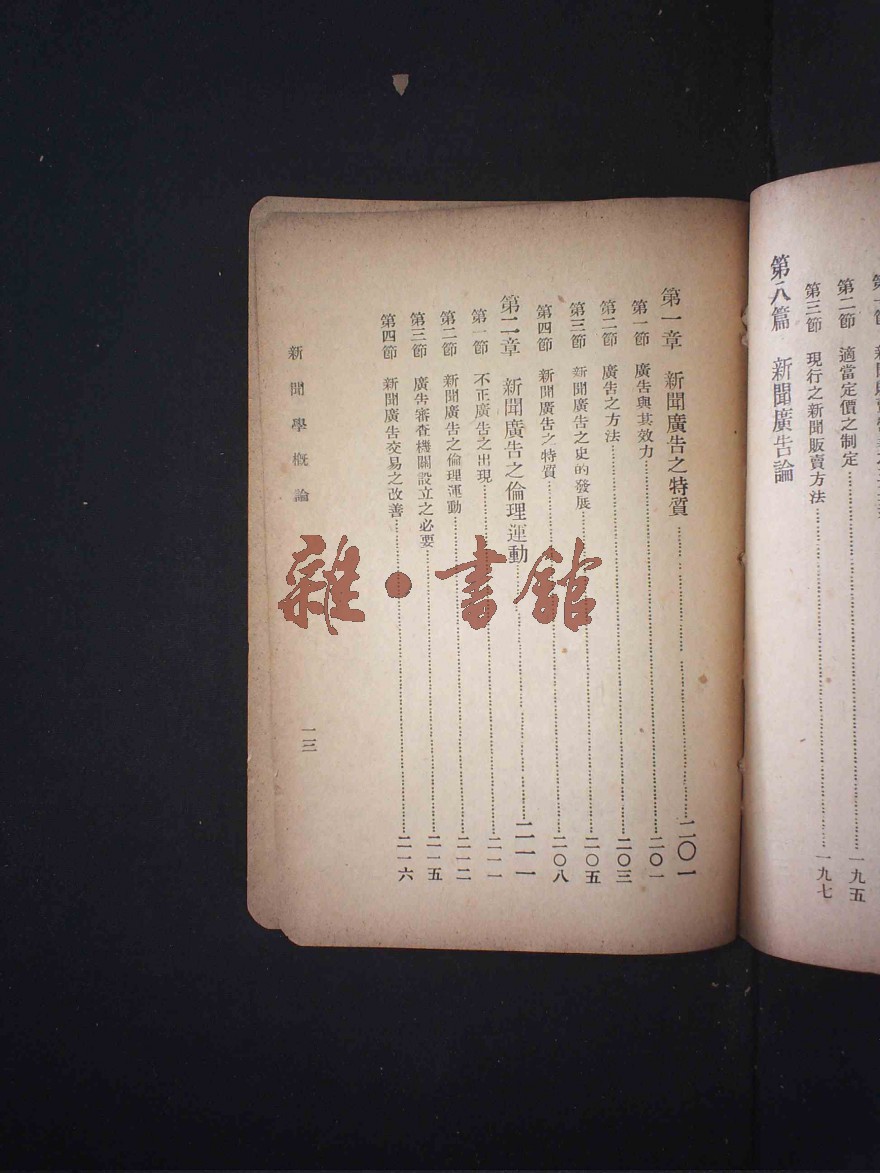 第二節　適當定價之制定……一九五
第三節　現行之新聞販賣方法……一九七
第八篇　新聞廣告論
第一章　新聞廣告之特質……二〇一
第一節　廣告與其效力……二〇一
第二節　廣告之方法……二〇三
第三節　新聞廣告之史的發展……二〇五
第四節　新聞廣告之特質……二〇八
第二章　新聞廣告之倫理運動……二一一
第一節　不正廣告之出現……二一一
第二節　新聞廣告之倫理運動……二一二
第三節　廣告審查機關設立之必要……二一五
第四節　新聞廣告交易之改善……二一六
新聞學概論　一三
雜·書館